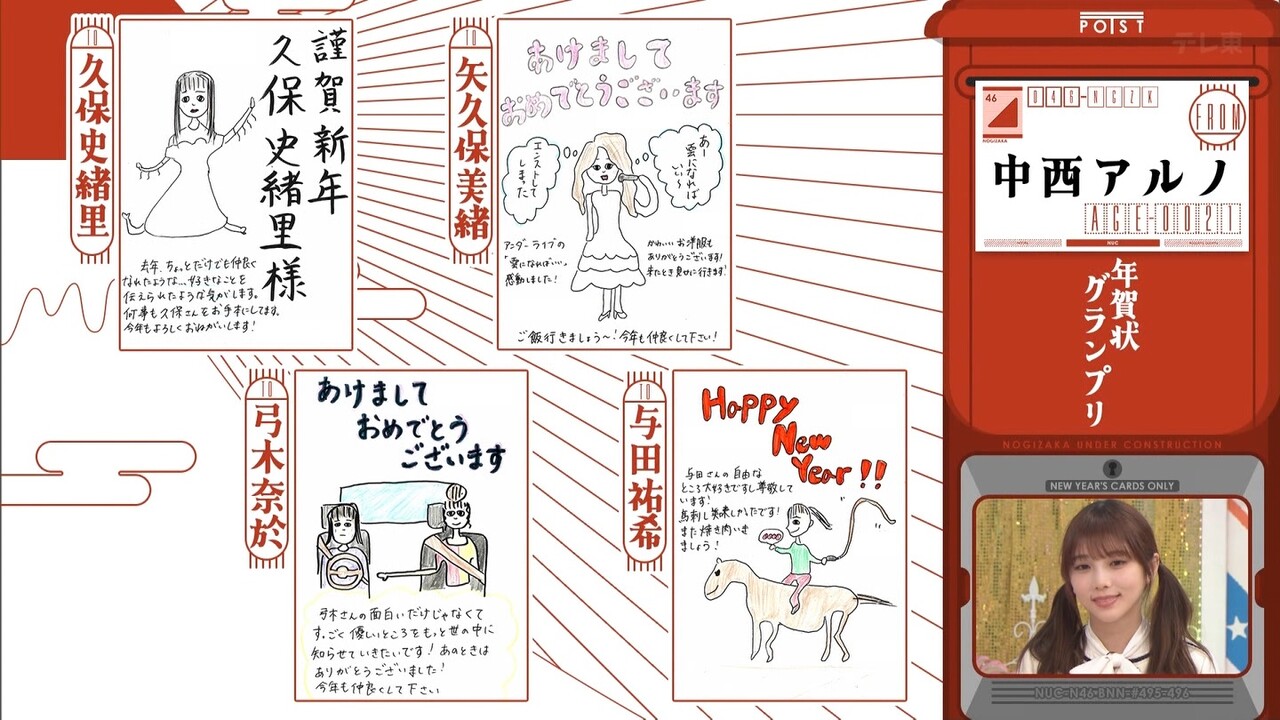 TO
久保史緒里
謹賀新年
久保史緒里様
去年、ちょっとだけでも仲良く
なれたような…好きなことを
伝えられたような気がします。
何事も久保さんをお手本にしてます。
今年もよろしくおねがいします!
TO
矢久保美緒
あけまして
おめでとうございます
エンストして
しまった
あー
雲になれば
いい〜
アンダーライブの
「雲になればいい」
感動しました!
かわいいお洋服も
ありがとうございます!
ご飯行きましょう〜!今年も仲良くして下さい!
TO
弓木奈於
あけまして
おめでとう
ございます
弓木さんの面白いだけじゃなくて
すっごく優しいところをもっと世の中に
知らせていきたいです!あのときは
ありがとうございました!
今年も仲良くして下さい
TO
与田祐希
Happy
New
Year!!
与田さんの自由な
ところ大好きですし尊敬して
います!
馬刺し美味しかったです!
また焼き肉いき
ましょう!
POST
テレ東
46
NOGIZAKA
046-NGZK
FROM
中西アルノ
AGE-0021
NUC
年賀状
グランプリ
NOGIZAKA UNDER CONSTRUCTION
NEW YEAR'S CARDS ONLY
NUC-N46-BNN-#495-496